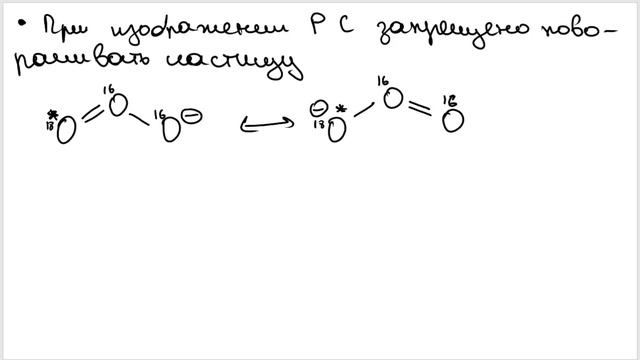 • При изображении РС запрещено пово-
рачивать частицу
*18O=16O-16O⊖ ⟷ ⊖*18O-16O=16O